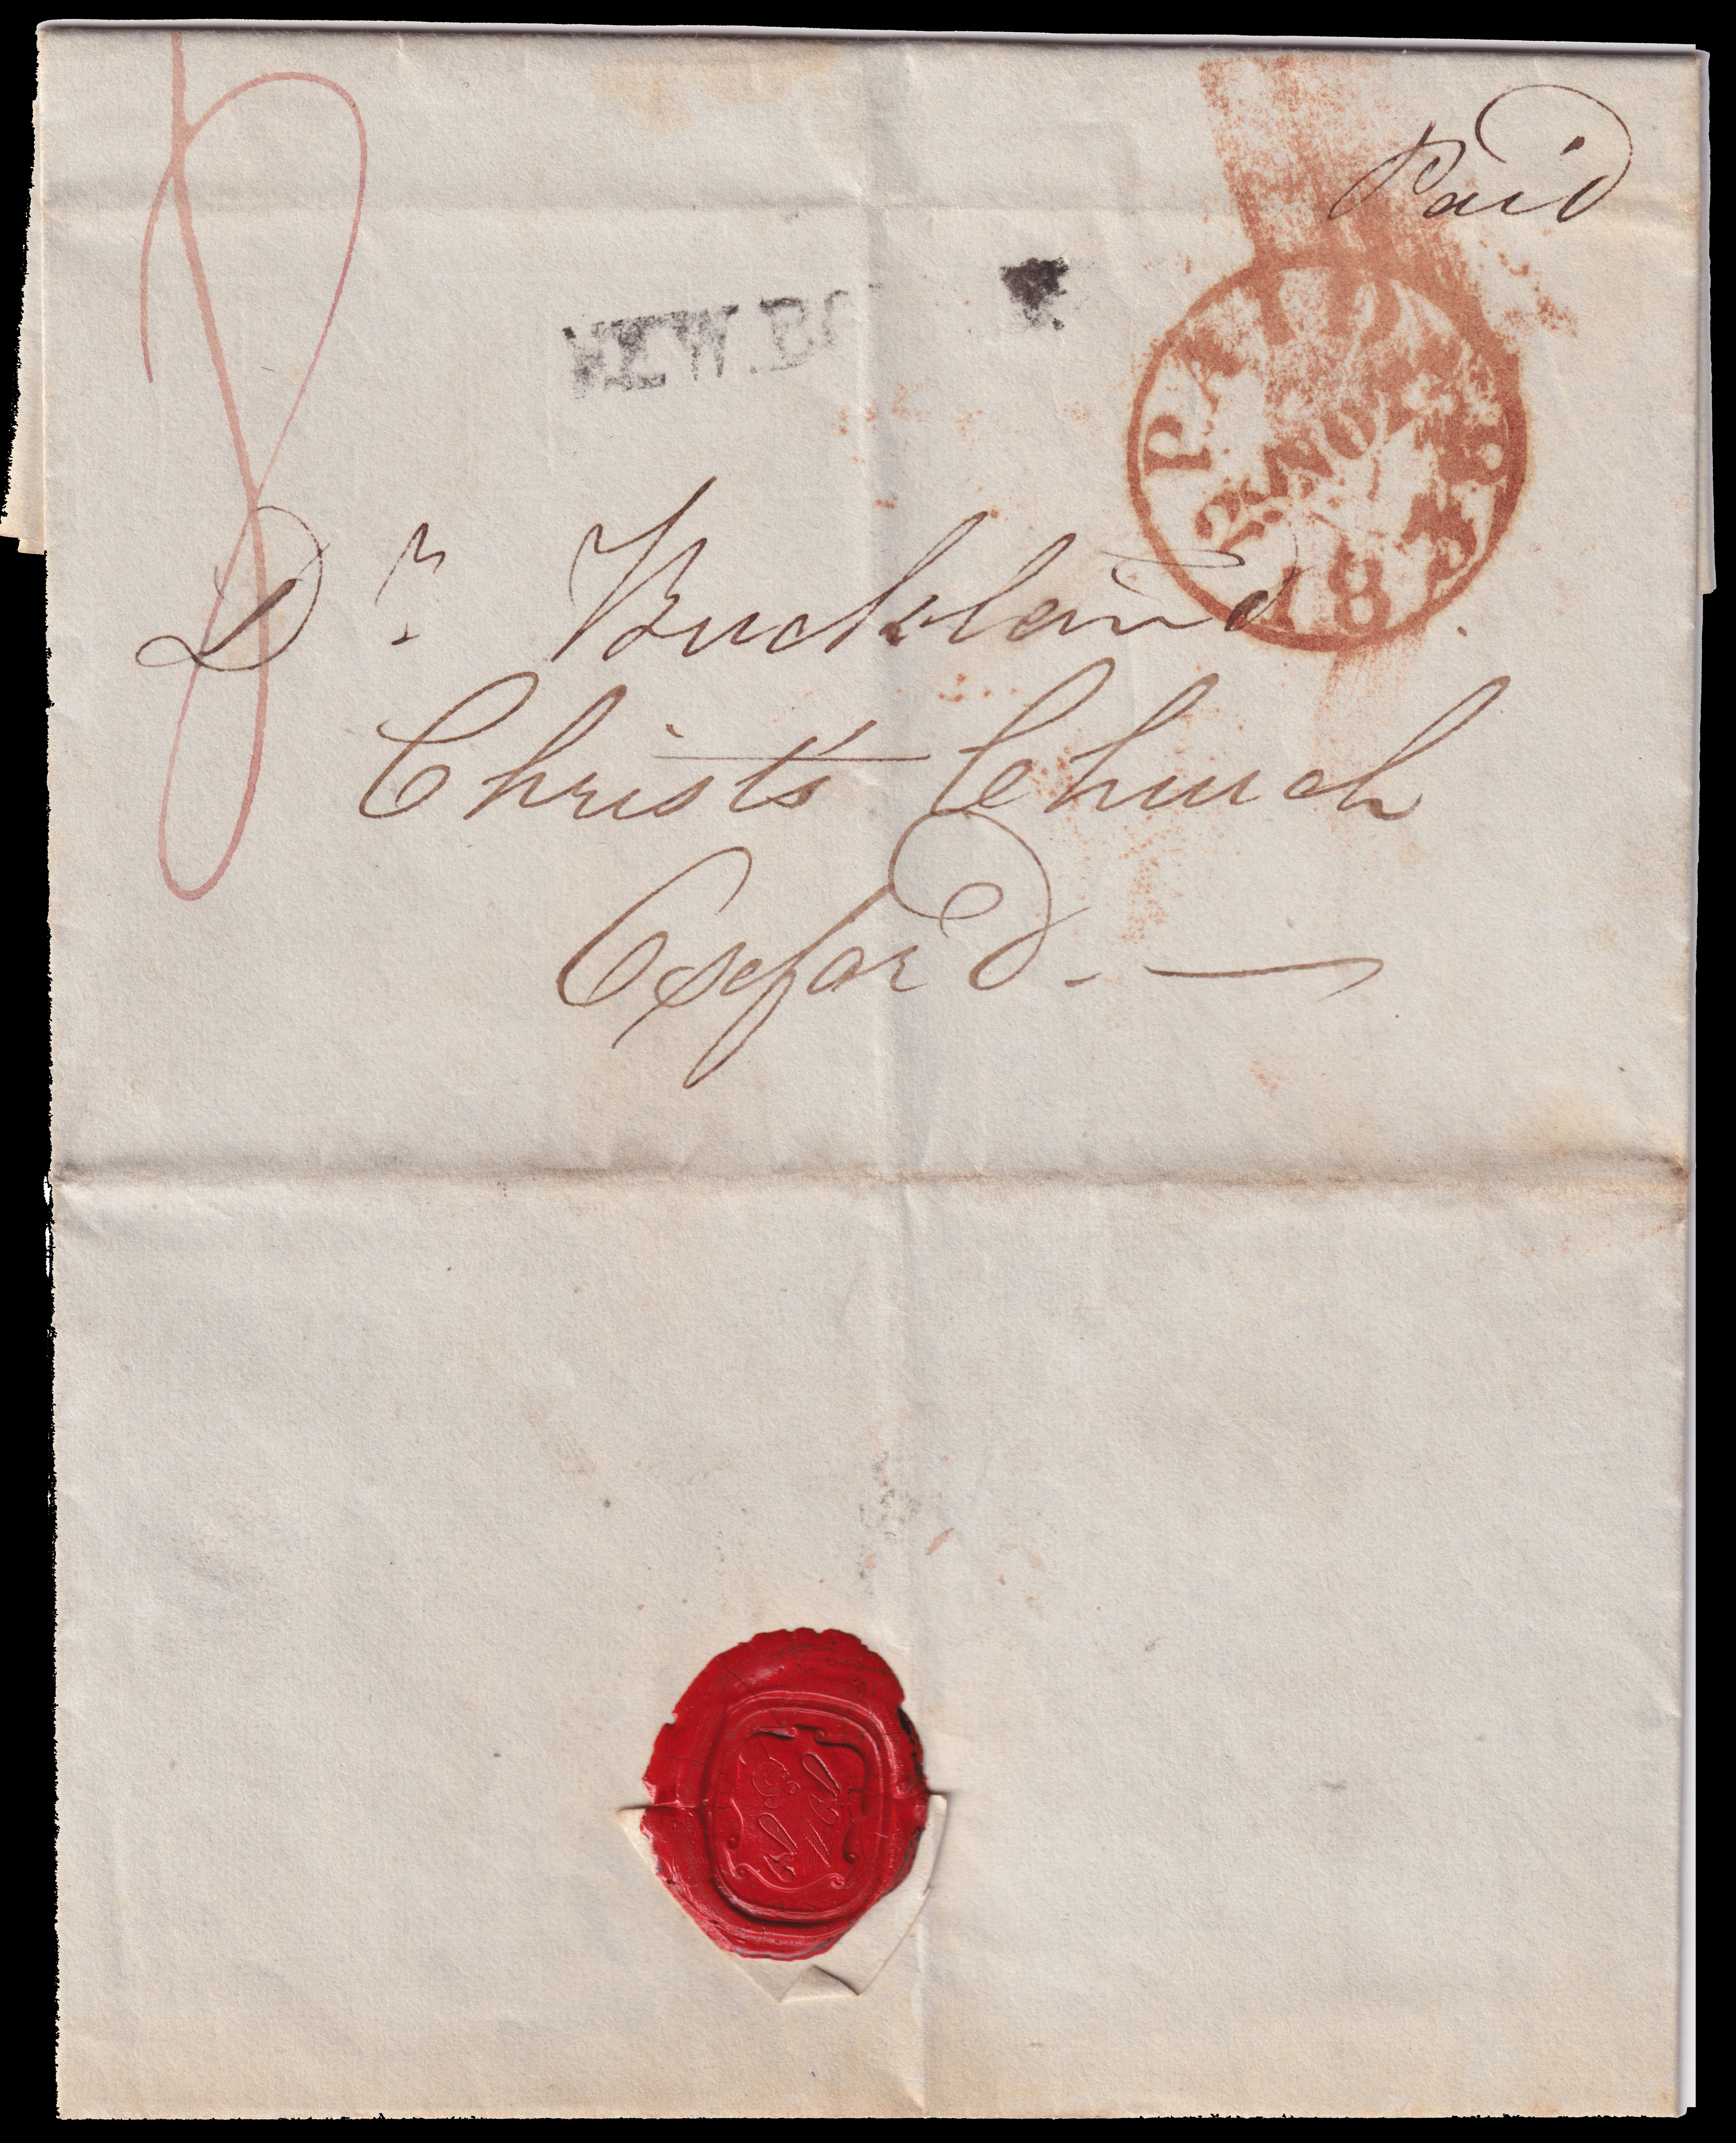 8
Paid
NEW.BO
PAID
2 NO 2
183
Dr Buckland
Christ's Church
Oxford.